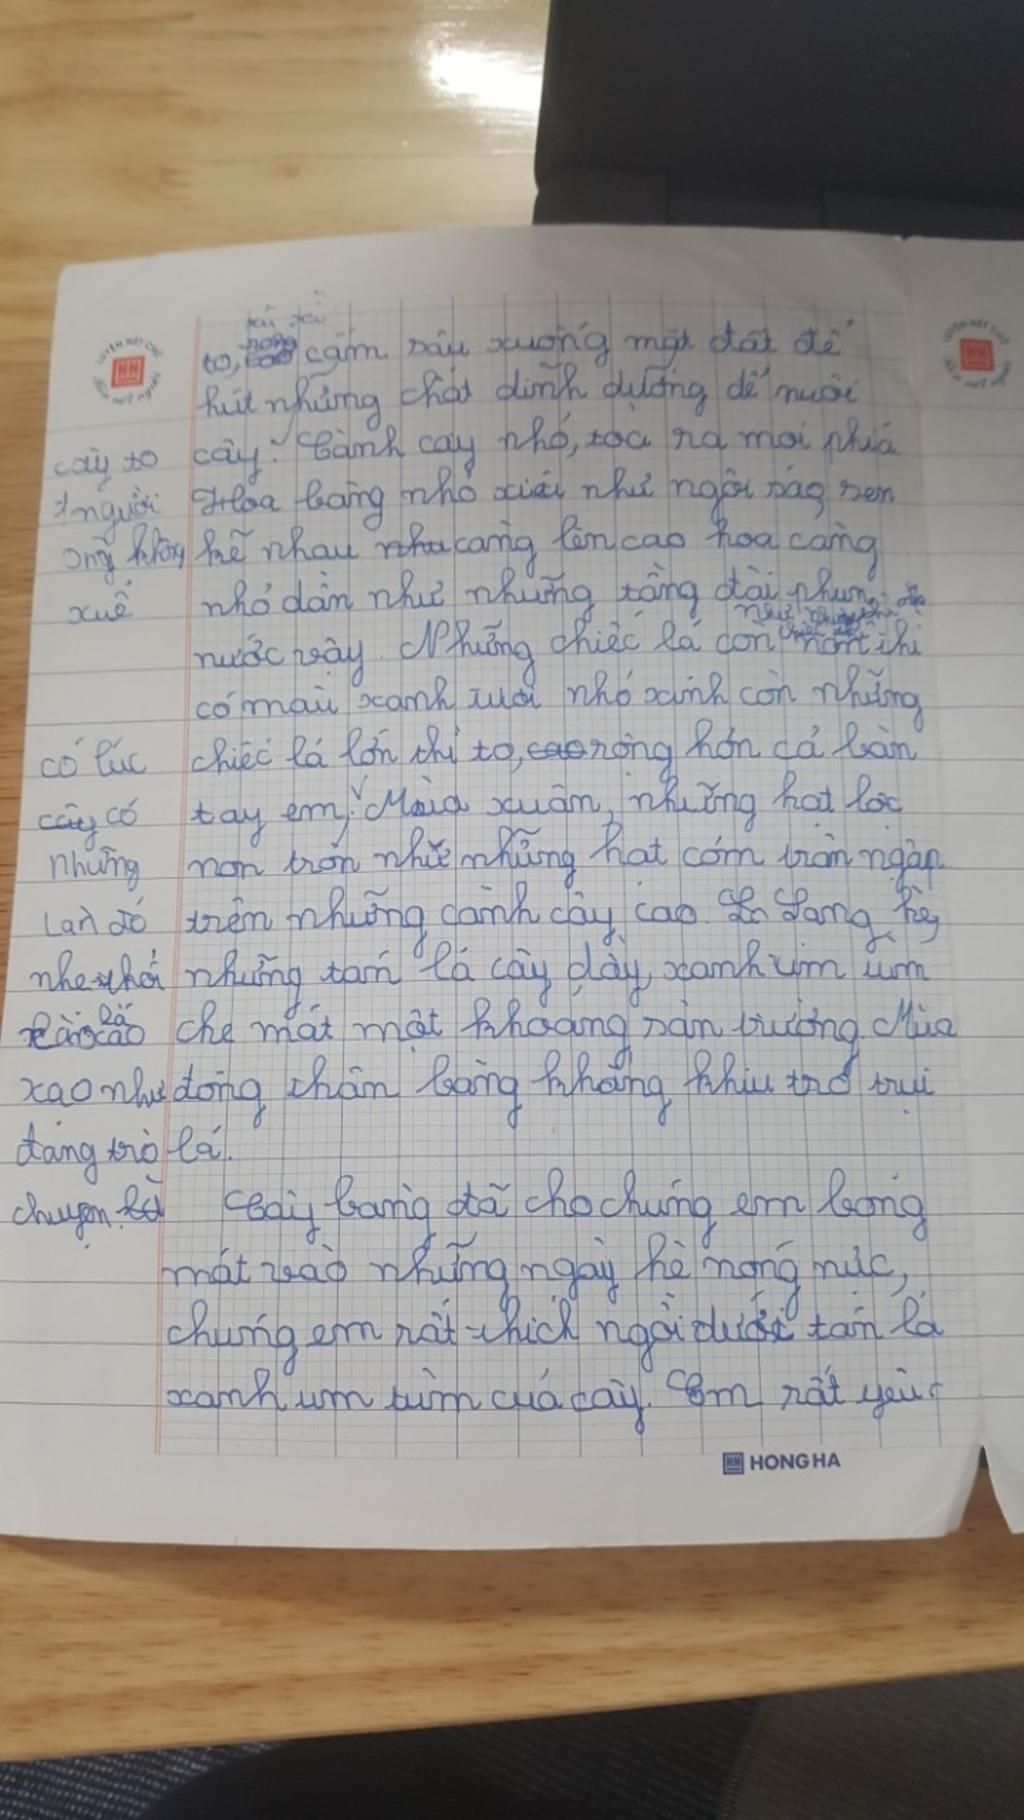 to, cắm sâu xuống mặt đất để
hút những chất dinh dưỡng để nuôi
cây. Cành cây nhỏ, tọa ra mọi phiá
Hoa bàng nhỏ xiú như ngôi
kẽ nhau càng lên cao hoa càng
nhỏ dần như những tầng đài phun
nước vậy. Những chiếc lá con thì
có màu xanh tươi nhỏ xinh còn những
chiếc lá lớn thì to, rộng hơn cả bàn
tay em. Mùa xuân, những hạt lộc
non tròn như những hạt cốm tràn ngập
trên những cành cây cao. Sang hè
những tán lá cây dày, xanh um um
che mát một khoảng sân trường. Mùa
đông thân bàng khẳng khiu trơ trụi
lá.
Cây bàng đã cho chúng em bóng
mát vào những ngày hè nóng nực,
chúng em rất thích ngồi dưới tán lá
xanh um tùm của cây. Em rất yêu
cây to
1 người
ông khổng
xuề
có lúc
cây có
những
làn gió
nhẹ thổi
lá
xao như
đang trò
chuyện
LUYỆN NÉT CHỮ
HH
HONG HA